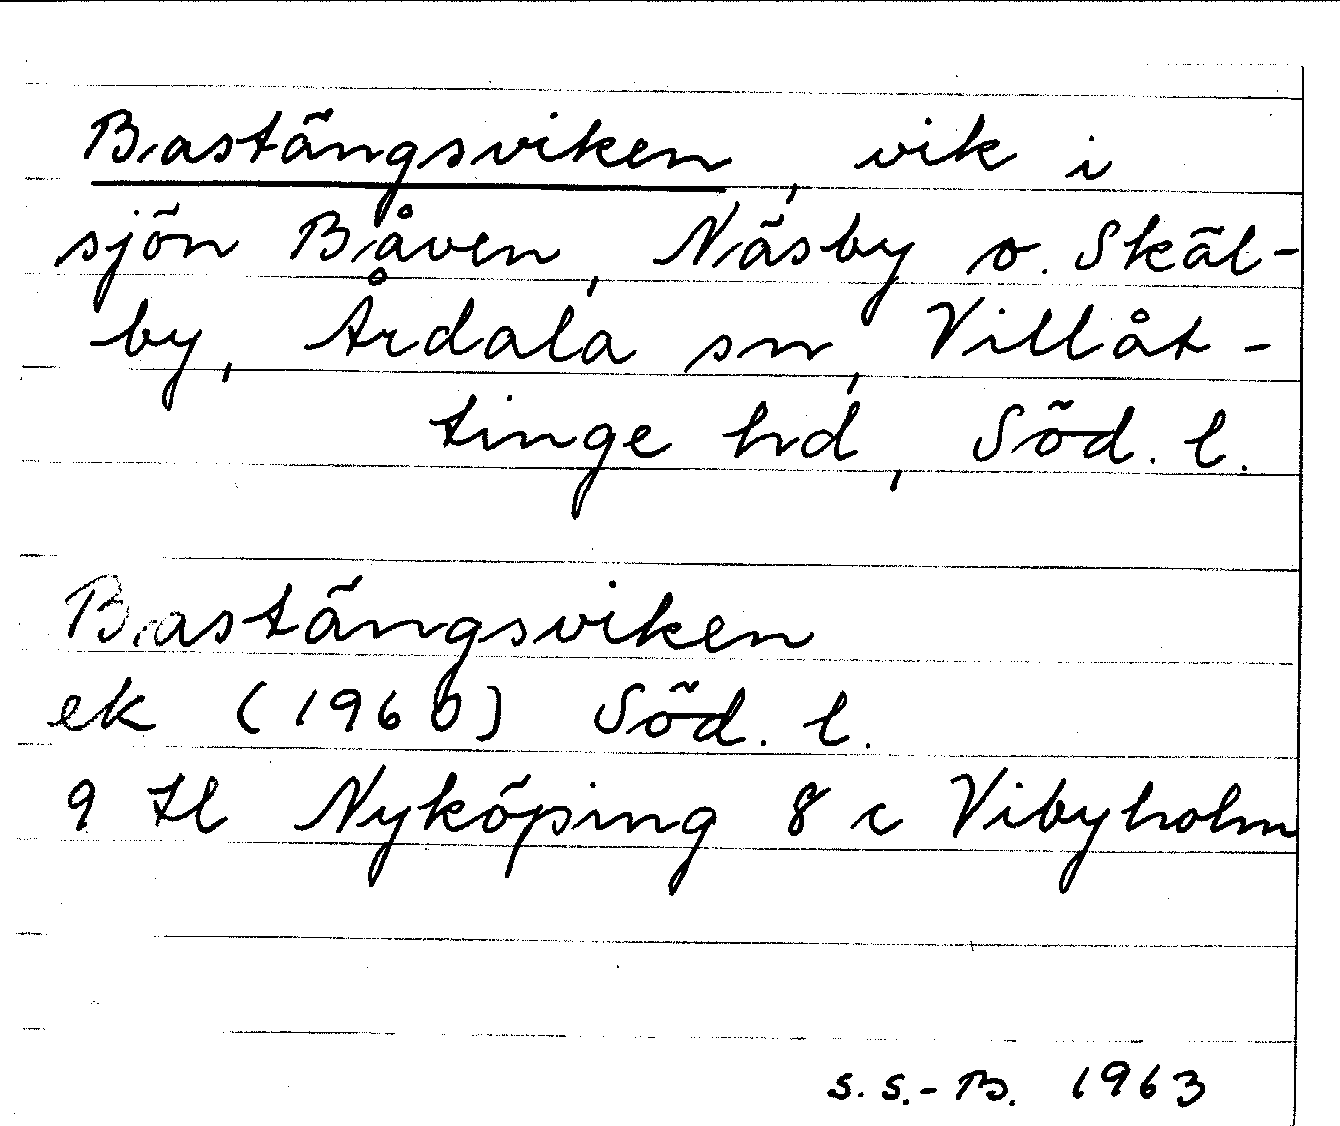 Bastängsviken, vik i
sjön Båven, Näsby o. Skäl-
by, Årdala sn, Villåt-
tinge hd, Söd. l.
Bastängsviken
ek (1960) Söd. l.
9 tl Nyköping 8 c Vibyholm
s.s.-B. 1963